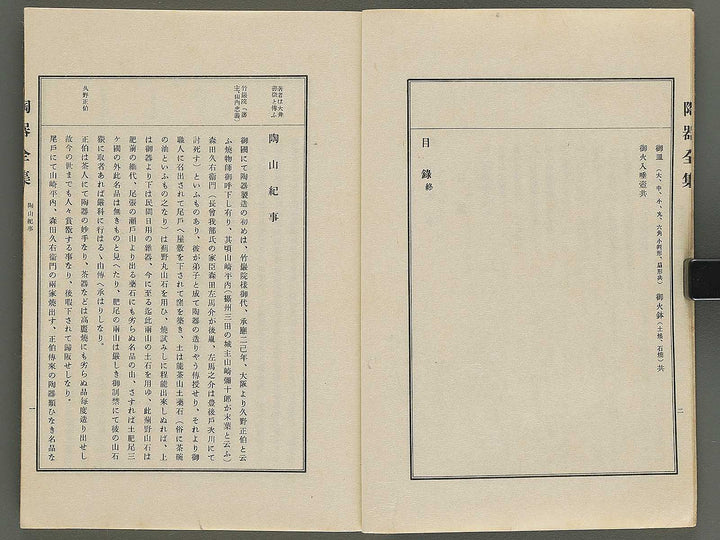 陶器全集
御皿（大、中、小、丸、六角小判形、扇形共）　御火鉢（土燒、石燒）共
御火入唾壺共
目錄終
二
著者は大井
竹嚴院（二代
主、山內忠義）
久野正伯
陶山紀事
御國にて陶器製造の初めは、竹嚴院樣御代、承應二己年、大阪より久野正伯と云
ふ燒物師御呼下し有り、其頃山崎平內（攝州三田の城主山崎彌十郎が末葉と云ふ）
森田久右衞門（長曾我部氏の家臣森田左馬介が後胤、左馬之介は豊後戶次川にて
討死す）といふものあり、彼が弟子と成て陶器の造りやう傳授せり、それより御
職人に召出されて尾戶へ屋敷を下されて窯を築き、土は能茶山土藥石（俗に茶碗
の油といふもの之なり）は薊野丸山石を用ひ、燒試みしに程能出來しぬれば、上
は御器より下は民間日用の雜器、今に至る迄此兩山の土石を用ゆ、此薊野山石は
肥前の網代、尾張の瀨戶山より出る藥石にも劣らぬ名品の由、さすれば土肥尾三
ケ國の外此名品は無きものと見へたり、肥尾の兩山は嚴しき御制禁にて彼の山石
竊に取者あれば嚴科に行はるゝ由傳へ承はりしなり。
正伯は茶人にて陶器の妙手なり、茶器などは高麗燒にも劣らぬ品每度造り出せし
故今の世までも人々賞翫する事なり、後暇下されて歸阪せしなり。
尾戶にて山崎平內、森田久右衞門の兩家燒出す、正伯傳來の陶器類ひなき名品な
陶器全集
陶山紀事
一